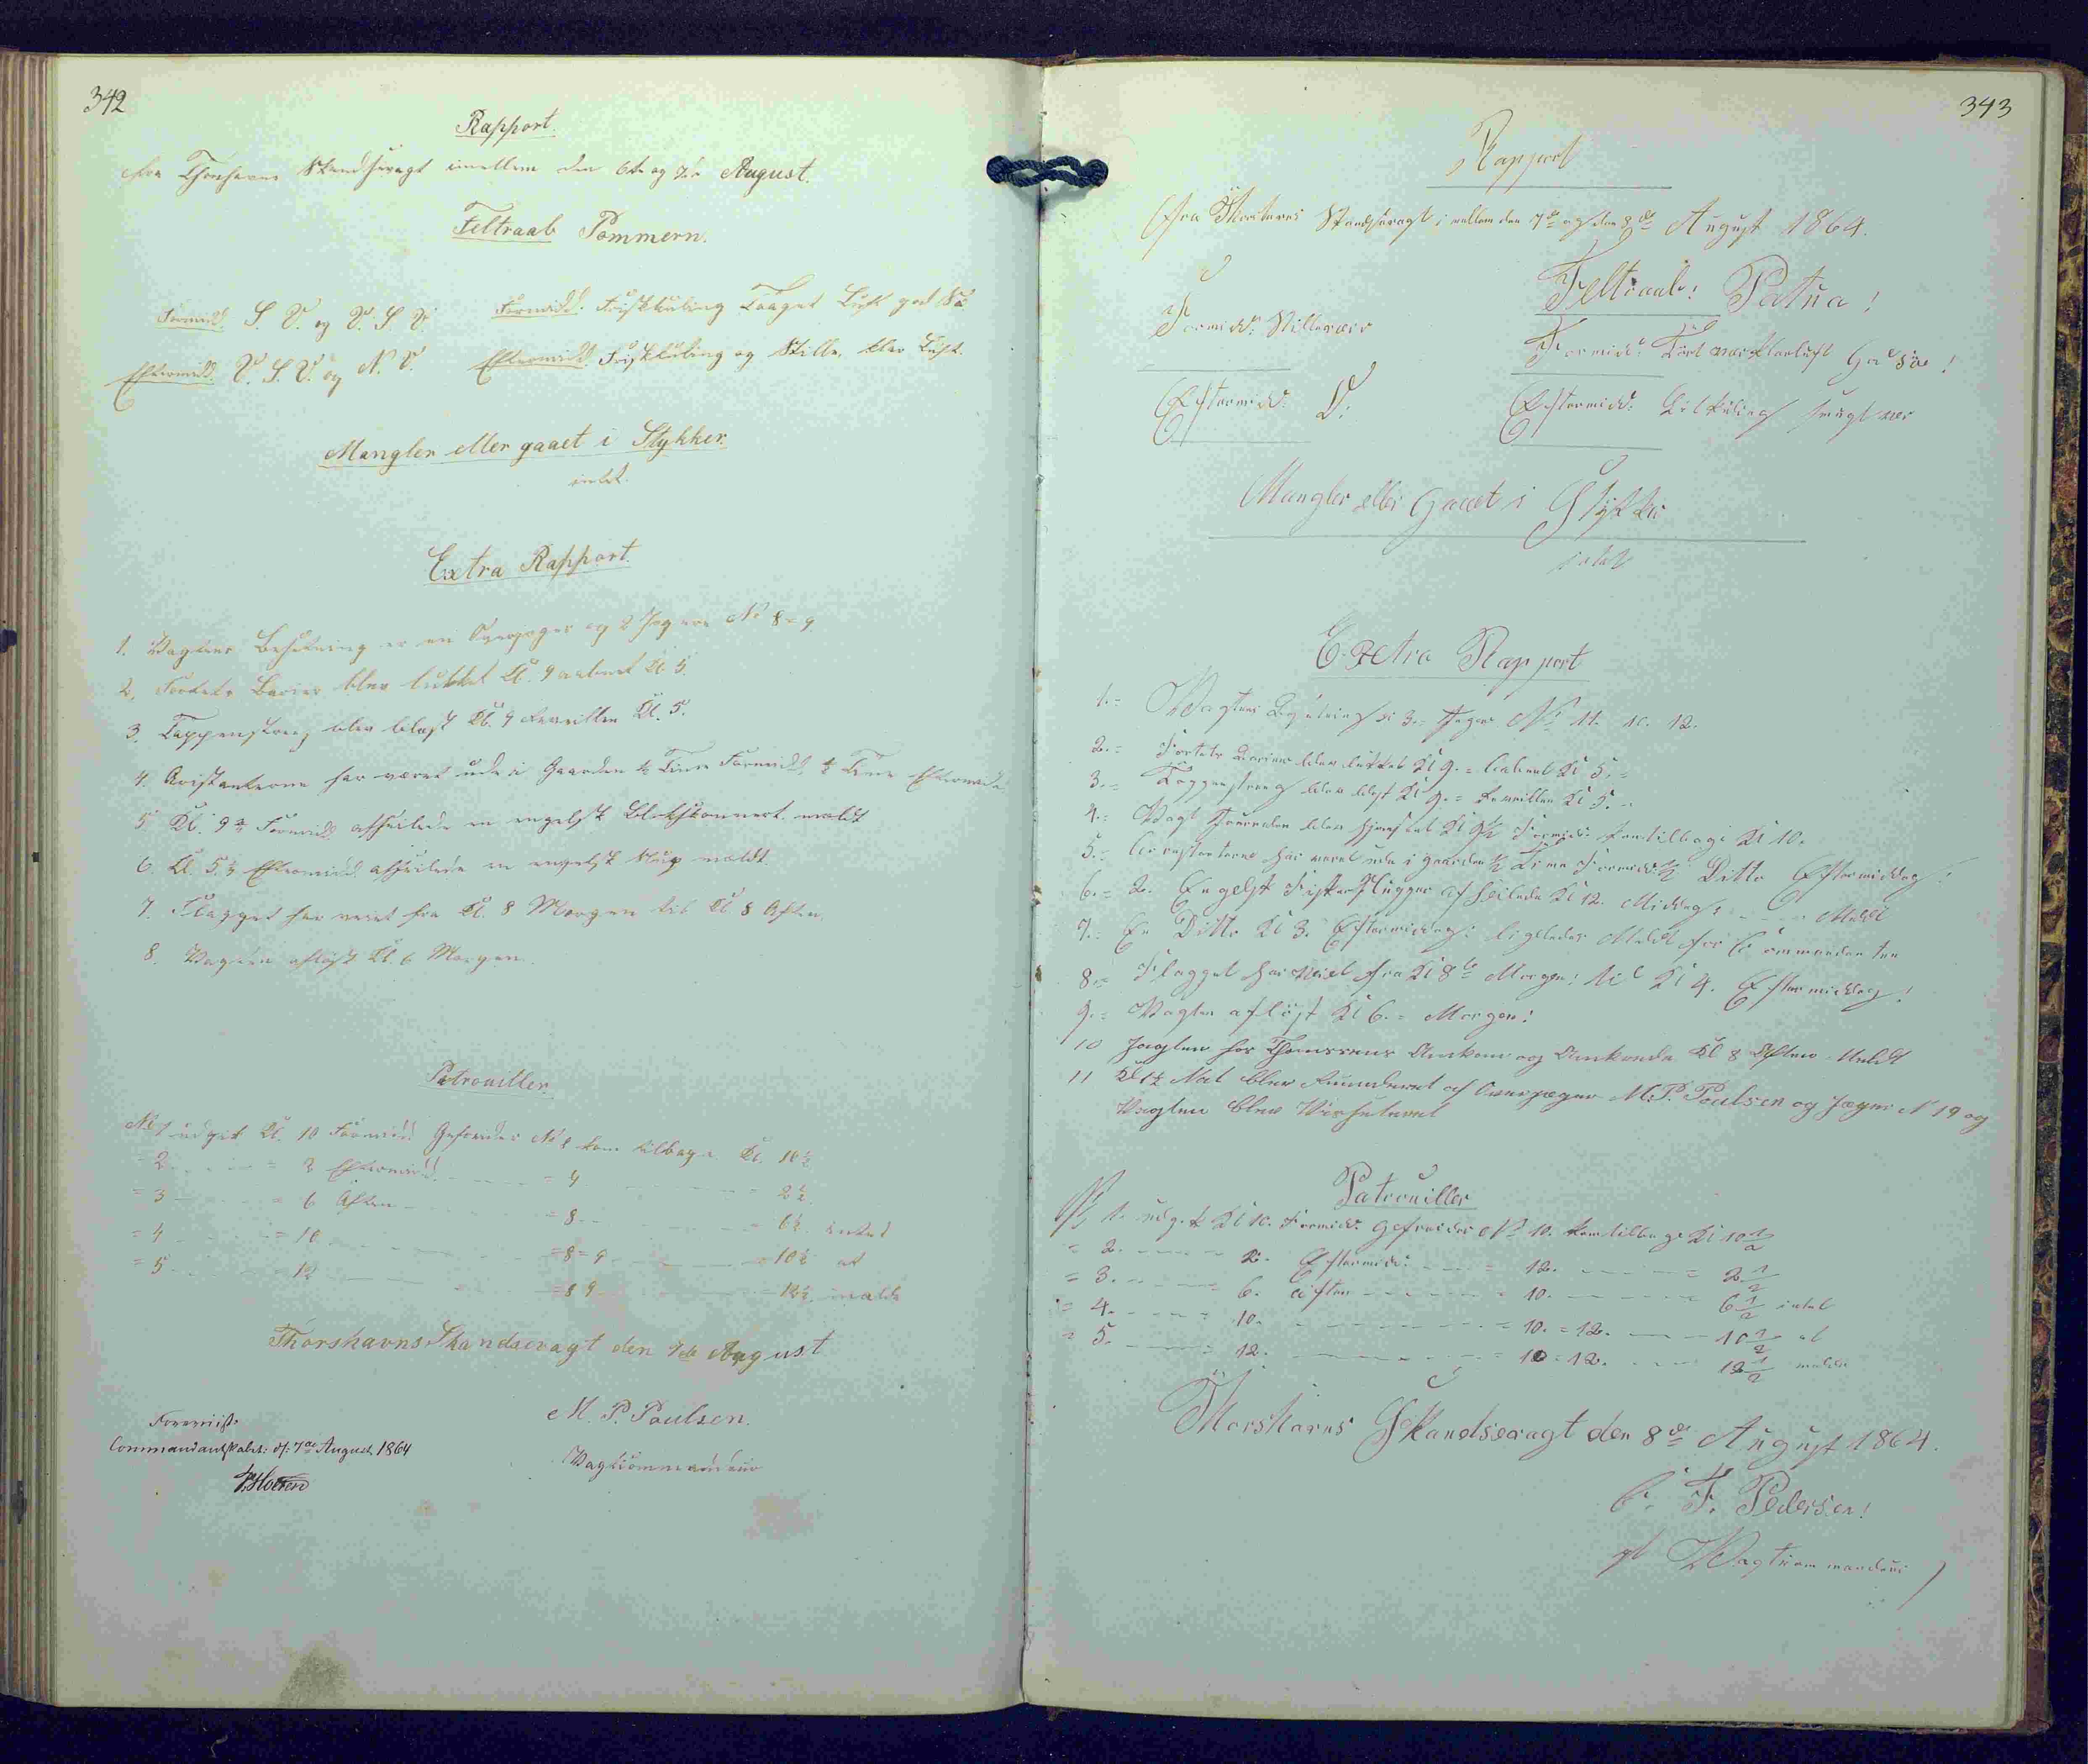 342
Rapport.
fra Thorshavns Skandsevagt imellem den 6te og 7de August.
Feltraab Pommern.
Formidd. S. V. og V. S. V. Formidd. Friskkuling Taaget Luft god Sø
Eftermidd. V. S. V. og N. V. Eftermidd. Friskkuling og Stille, klar Luft.
Mangler eller gaaet i Stykker.
intet.
Extra Rapport.
1. Vagtens Besætning er en Overjæger og 2 Jægere No 8 = 9.
2. Fortets Barier blev lukket Kl. 9 aabnet Kl. 5.
3. Tappenstreg blev blæst Kl. 9 Reveillen Kl. 5.
4. Aristanterne har været ude i Gaarden ½ Time Formidd. ½ Time Eftermidd.
5 Kl. 9 Formidd. afseilede en engelsk Slupskonnert. meldt
6. Kl. 5½ Eftermidd. afseilede en engelsk Slup meldt.
7. Flagget har veiet fra Kl. 8 Morgen til Kl 8 Aften.
8. Vagten afløst Kl. 6 Morgen.
Patrouiller.
No 1 udgik Kl. 10 Formidd. Gefreider No 8 kom tilbage Kl. 10½
= 2 = 2 Eftermidd. = 9 = 2½.
= 3 = 6 Aften = 8. = 6½ intet
= 4 = 10 = 8 = 9 = 10½ at
= 5 12 = 8 9 12½ melde
Thorshavns Skandsevagt den 7de August
M. P. Poulsen.
Vagtcommandeur
Foreviist.
Commandantskabet: d: 7de August 1864
343
Rapport
fra Thorshavns Skandsevagt imellem den 7de og den 8de August 1864.
Feltraab: Patna!
Formidd: Stillevær Formidd: Tört vær klarluft God Sö!
Eftermidd: V: Eftermidd: Lil Kuling fugt vær
Mangler eller Gaaet i Stykker
intet
Extra Rapport
1.= Vagtens Besætning er 3.= Jæger No 11. 10. 12.
2.= Fortets Barier blev lukket Kl 9.= Aabnet Kl 5.=
3.= Tappenstreg blev blæst Kl 9.= Reveillen Kl 5.=
4.= Vagt Journalen blev hjemsent Kl 9½ Formidd: kom tilbage Kl 10.
5.= Arrestanterne har veret ude i gaarden ½ Time Formidd: ½ Ditto Eftermiddag!
6.= 2. Engelsk Fisker Slupper afseilede Kl 12. Middag: Meldt
7.= En Ditto Kl 3. Eftermiddag: ligeledes Meldt for Commandanten
8.= Flagget har Veiet fra Kl 8te Morgen: til Kl 4. Eftermiddag!
9.= Vagten aflöst Kl 6.= Morgen!
10 Jagten hos Thomsens Ankom og Ankrede Kl 8 Aften Meldt
11 Kl 1½ Nat blev Runderet af Overjæger M. P. Poulsen og Jæger No 19 og
Vagten blev Visiteret
Patrouiller
No 1. udgik Kl 10. Formidd: Gefreider No 10. kom tilbage Kl 10 1/2
= 2. 2. Eftermidd: = 12. = 2 1/2
= 3. 6. Aften = 10. 6 1/2 intet
= 4. 10. = 10. = 12. 10 1/2 at
= 5. 12. = 10 = 12. 12 1/2 melde
Thorshavns Skandsevagt den 8de August 1864.
F. Pedersen!
Vagtkommandeur